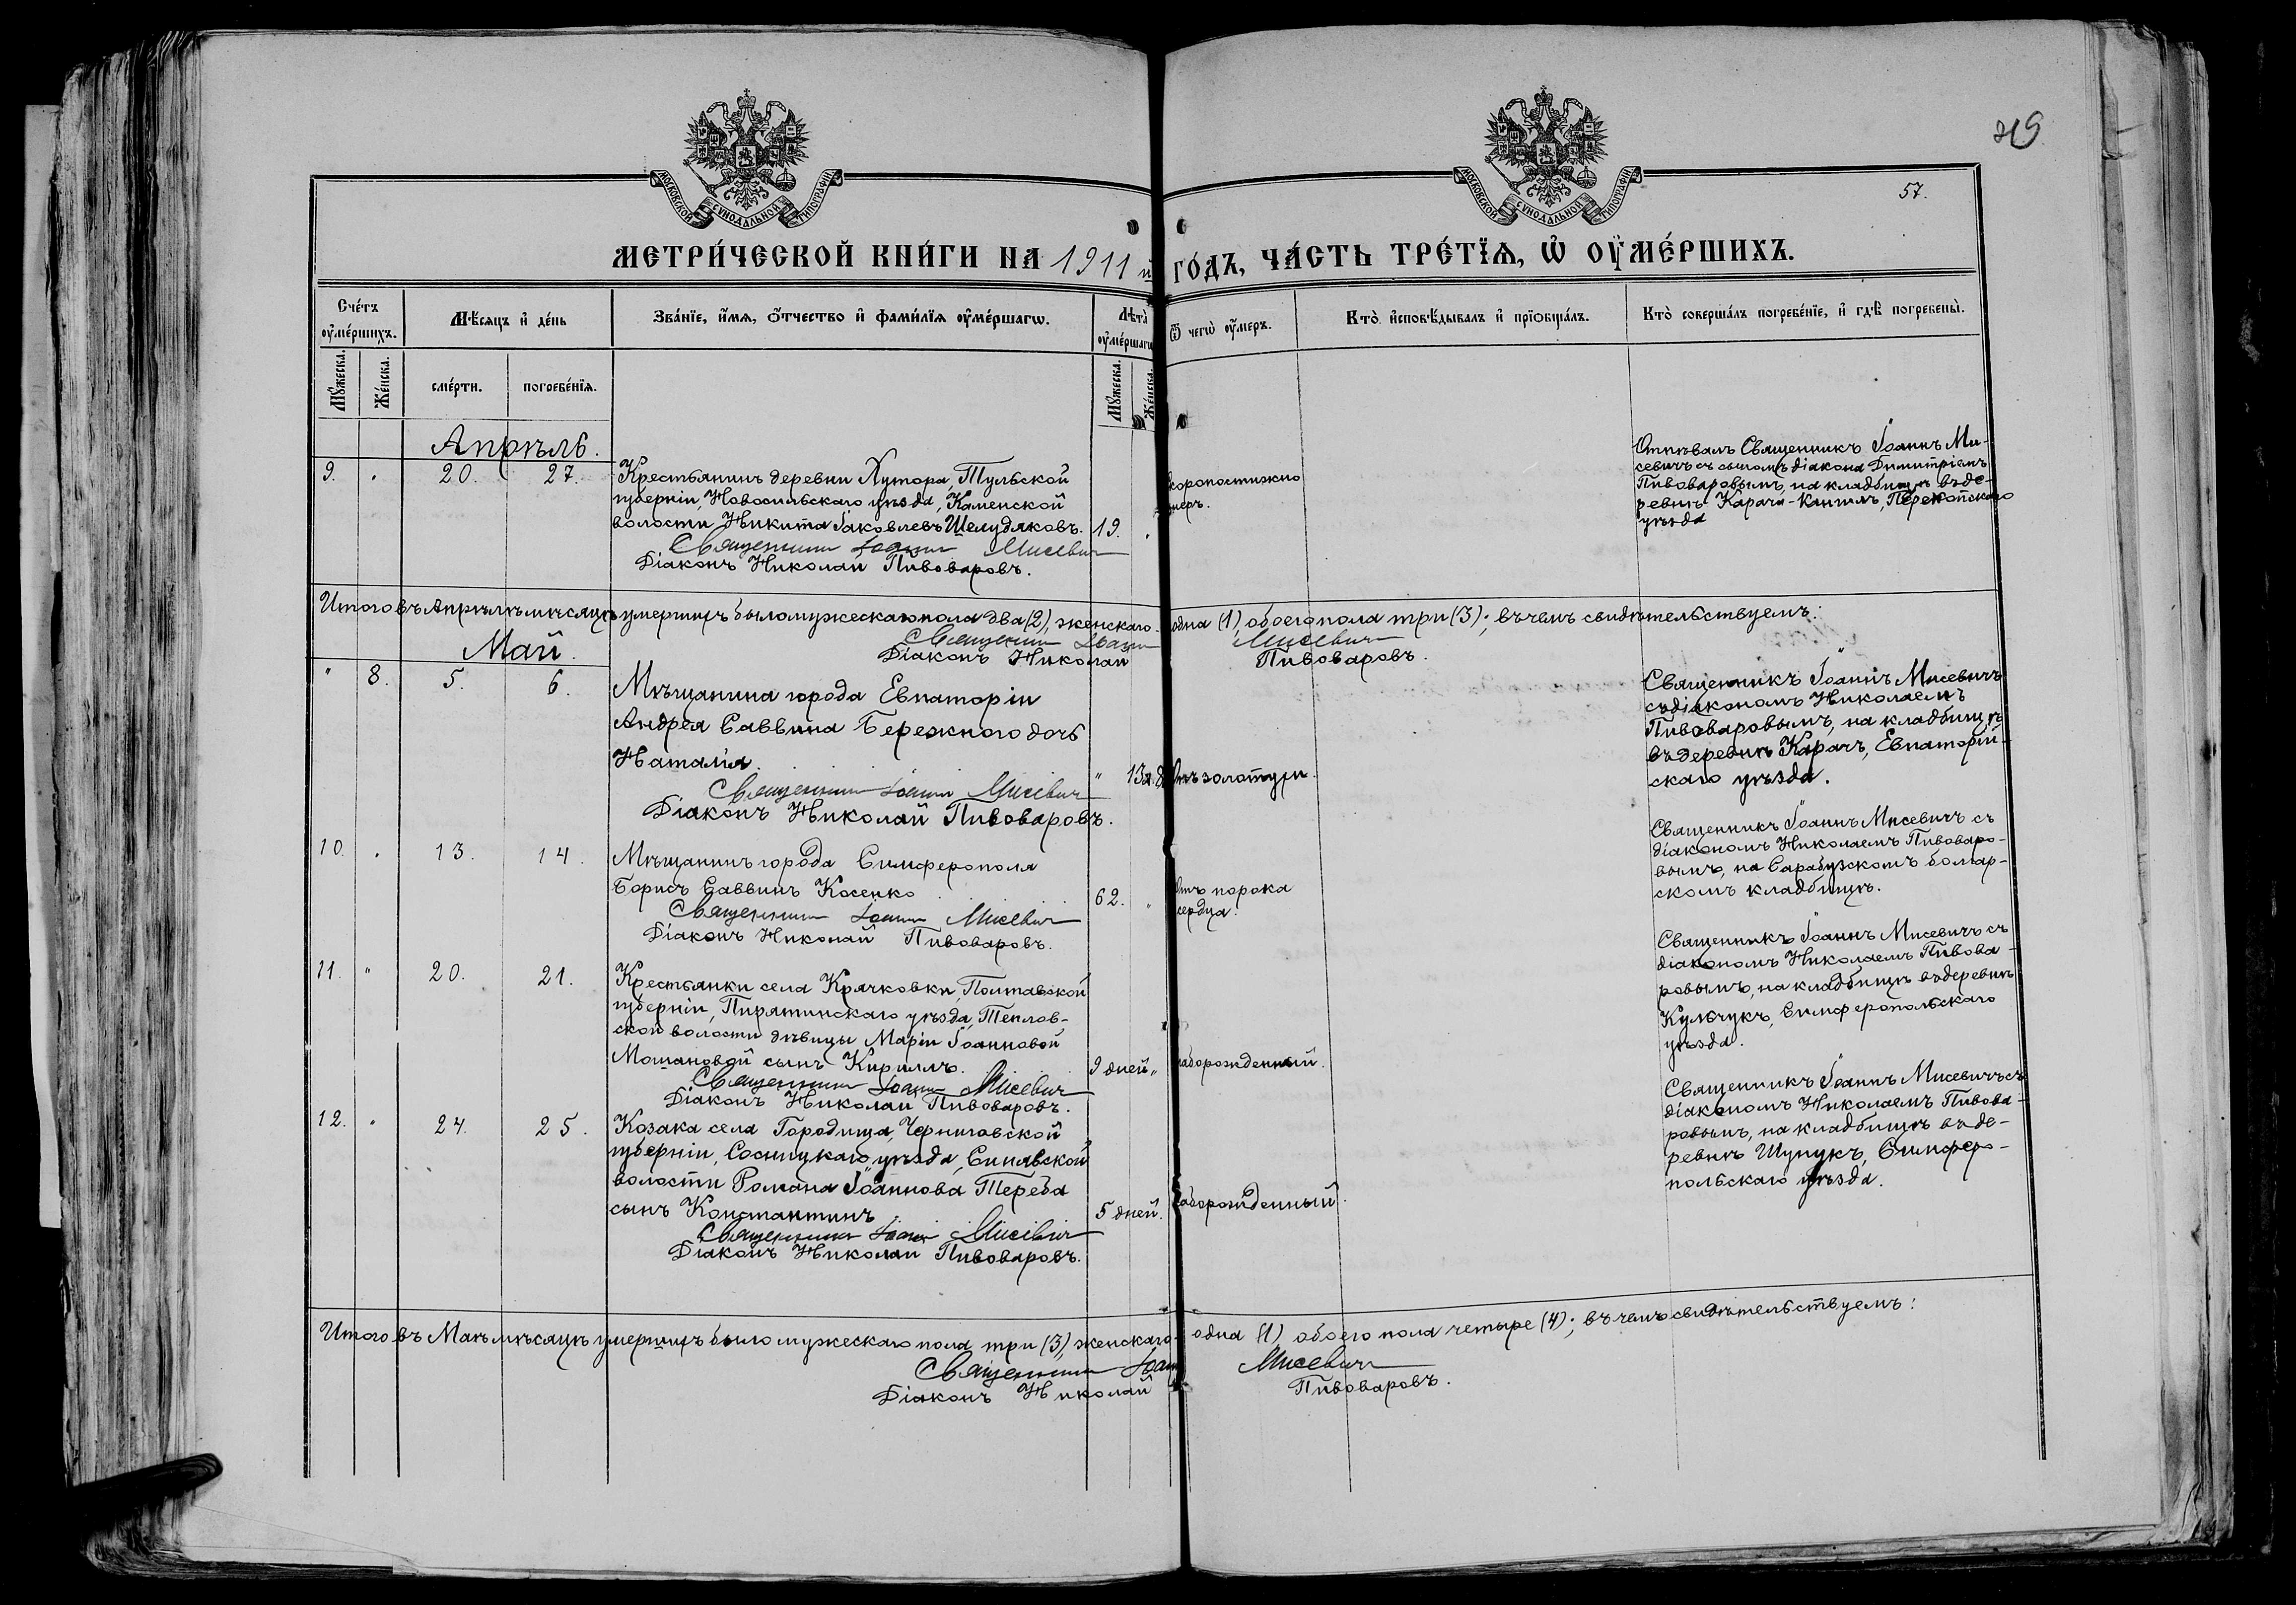 МОСКОВСКОЙ СѴНОДАЛЬНОЙ ТИПОГРАФІИ
МОСКОВСКОЙ СѴНОДАЛЬНОЙ ТИПОГРАФІИ
57.
МЕТРИ́ЧЕСКОЙ КНИ́ГИ НА 1911 й ГО́ДЪ, ЧА́СТЬ ТРЕ́ТЇѦ, Ѡ ОУ҆МЕ́РШИХЪ.
Сче́тъ оу҆ме́ршихъ.
Мѣ́сяцъ и҆ де́нь
Зва́нїе, и҆́мя, ѻ҆́тчество и҆ фами́лїя оу҆ме́ршагѡ.
Лѣта̀ оу҆ме́ршагѡ
Ѿ чегѡ̀ оу҆́меръ.
Кто̀ и҆сповѣ́дывалъ и҆ прїѡбща́лъ.
Кто̀ соверша́лъ погребе́нїе, и҆ гдѣ̀ погребены̀.
Мꙋ́жеска.
Же́нска.
сме́рти.
погребе́нїя.
Мꙋ́жеска.
Же́нска.
Апрѣль.
9. " 20. 27.
Крестьянинъ деревни Хутора, Тульской
губерніи, Новосильскаго уѣзда, Каменской
волости Никита Іаковлевъ Шелудяковъ. 19.
Священникъ Іоаннъ Мисевичъ
Діаконъ Николай Пивоваровъ.
скоропостижно
умеръ.
Отпѣвалъ Священникъ Іоаннъ Ми-
севичъ съ сыномъ діакона Димитріемъ
Пивоваровымъ, на кладбищѣ въ де-
ревнѣ Карача-Кангилъ, Перекопскаго
уѣзда
Итого въ Апрѣлѣ мѣсяцѣ умершихъ было мужескаго пола два (2), женскаго одна (1) обоего пола три (3); въ чемъ свидѣтельствуемъ:
Священникъ Іоаннъ Мисевичъ
Діаконъ Николай Пивоваровъ.
Май.
" 8. 5. 6.
Мѣщанина города Евпаторіи
Андрея Саввина Бережного дочь
Наталія.
Священникъ Іоаннъ Мисевичъ
Діаконъ Николай Пивоваровъ.
Отъ золотухи.
Священникъ Іоаннъ Мисевичъ
съ діакономъ Николаемъ
Пивоваровымъ, на кладбищѣ
въ деревнѣ Карачъ, Евпаторій-
скаго уѣзда.
10. " 13. 14.
Мѣщанинъ города Симферополя
Борисъ Саввинъ Косенко 62. "
Священникъ Іоаннъ Мисевичъ
Діаконъ Николай Пивоваровъ.
Отъ порока
сердца.
Священникъ Іоаннъ Мисевичъ съ
діакономъ Николаемъ Пивоваро-
вымъ, на Сарабузскомъ болгар-
скомъ кладбищѣ.
11. " 20. 21.
Крестьянки села Крячковки, Полтавской
губерніи, Пирятинскаго уѣзда, Теплов-
ской волости дѣвицы Маріи Іоанновой
Мошановой сынъ Кириллъ. 9 дней "
Священникъ Іоаннъ Мисевичъ
Діаконъ Николай Пивоваровъ.
слаборожденный.
Священникъ Іоаннъ Мисевичъ съ
діакономъ Николаемъ Пивова-
ровымъ, на кладбищѣ въ деревнѣ
Кульчукъ, Симферопольскаго
уѣзда.
12. " 24. 25.
Козака села Городища, Черниговской
губерніи, Сосницкаго уѣзда, Синявской
волости Романа Іоаннова Тереба
сынъ Константинъ 5 дней.
Священникъ Іоаннъ Мисевичъ
Діаконъ Николай Пивоваровъ.
слаборожденный.
Священникъ Іоаннъ Мисевичъ съ
діакономъ Николаемъ Пивова-
ровымъ, на кладбищѣ въ де-
ревнѣ Шунукъ, Симферо-
польскаго уѣзда.
Итого въ Маѣ мѣсяцѣ умершихъ было мужескаго пола три (3), женскаго одна (1) обоего пола четыре (4); въ чемъ свидѣтельствуемъ:
Священникъ Іоаннъ Мисевичъ
Діаконъ Николай Пивоваровъ.